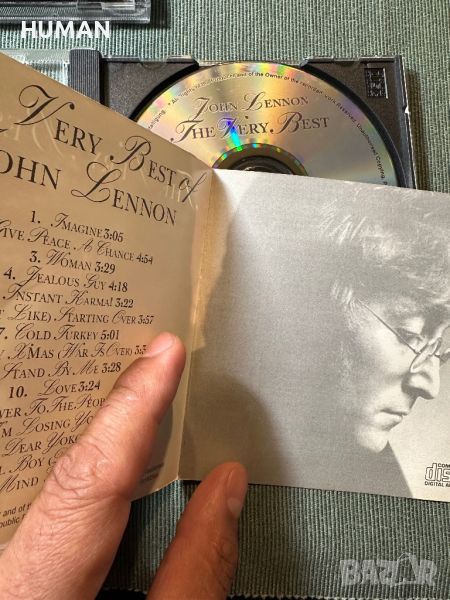 HUMAN
* All rights of the
of the Owner of the recorded Work Reserved. Unauthorised Copying,
John Lennon
The Very Best
Very Best of
John Lennon
1. Imagine 3:05
Give Peace A Chance 4:54
3. Woman 3:29
4. Jealous Guy 4:18
Instant Karma! 3:22
Like) Starting Over 3:57
7. Cold Turkey 5:01
Xmas (War Is Over) 3:3
Stand By Me 3:28
10. Love 3:24
er To The Peop
'm Losing You
Dear Yoko
Boy (
Mind
and of the
public
COM
dis
DIGITAL AU
BAZAR